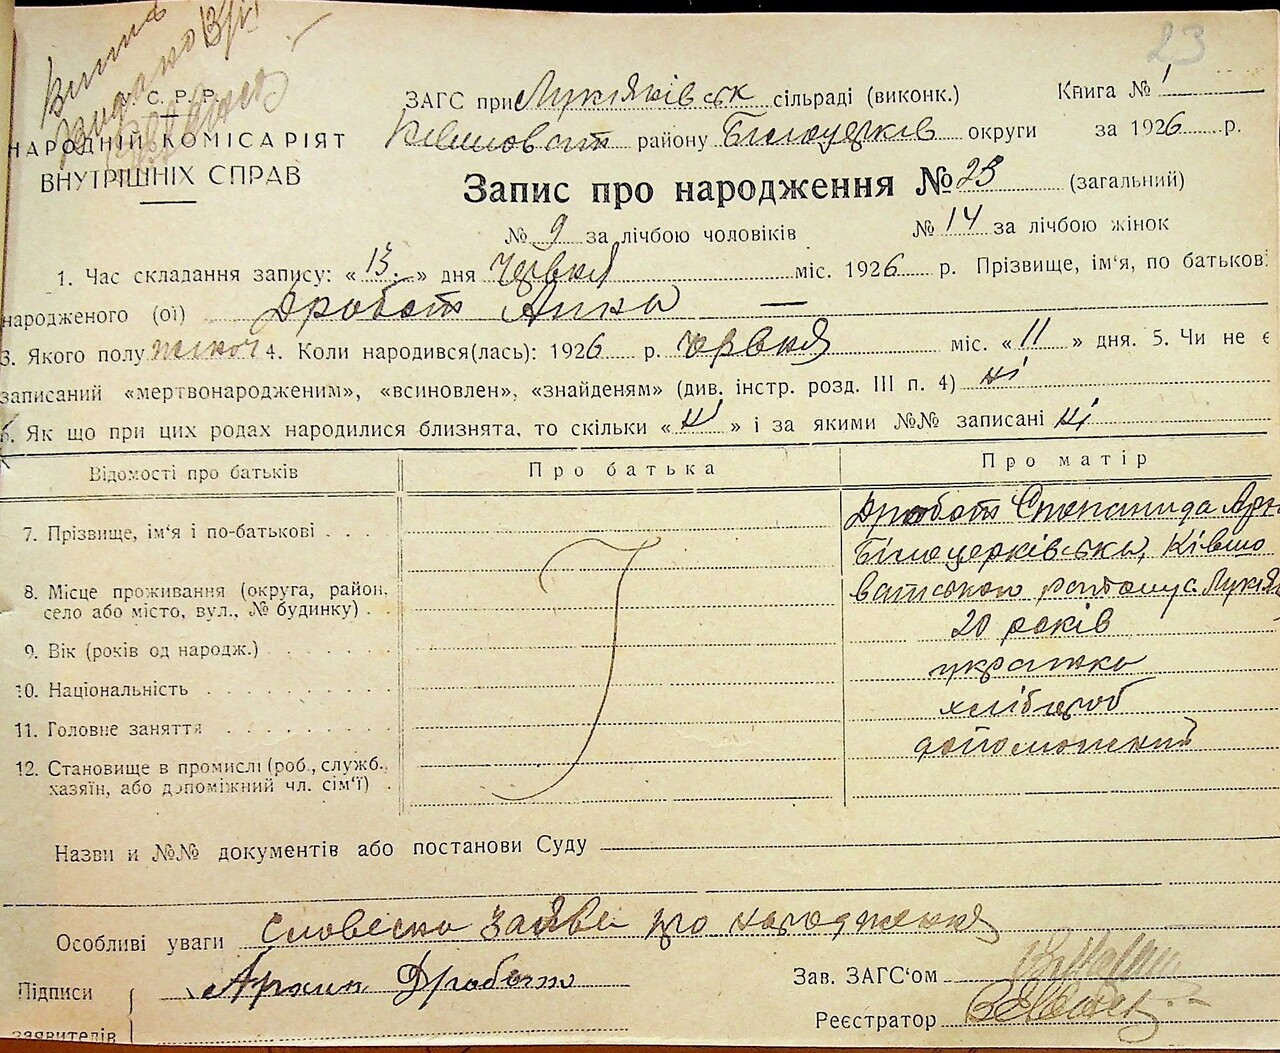 23
Видано
С. Р. Р.
НАРОДНІЙ КОМІСАРІЯТ
ВНУТРІШНІХ СПРАВ
ЗАГС при Лукіяківськ сільраді (виконк.) Книга № 1
Ківшоват району Білоцерків округи за 1926 р.
Запис про народження № 23 (загальний)
№ 9 за лічбою чоловіків № 14 за лічбою жінок
1. Час складання запису: « 13. » дня червня міс. 1926 р. Прізвище, ім'я, по батькові
народженого (ої) Дробот Анна —
3. Якого полу жіноч 4. Коли народився(лась): 1926 р. червня міс. « 11 » дня. 5. Чи не є
записаний «мертвонародженим», «всиновлен», «знайденям» (див. інстр. розд. III п. 4) ні
6. Як що при цих родах народилися близнята, то скільки « ні » і за якими №№ записані ні
Відомості про батьків Про батька Про матір
7. Прізвище, ім'я і по-батькові Дробот Степанида Арх
8. Місце проживання (округа, район, село або місто, вул., № будинку) Білоцерківська, Ківшо
ватського району с. Лукія
9. Вік (років од народж.) 20 років
10. Національність українка
11. Головне заняття хлібороб
12. Становище в промислі (роб., служб., хазяїн, або допоміжний чл. сім'ї) допоможний
Назви й №№ документів або постанови Суду
Особливі уваги словесна заява про народження
Підписи заявителів Архип Дробот
Зав. ЗАГС'ом
Реєстратор